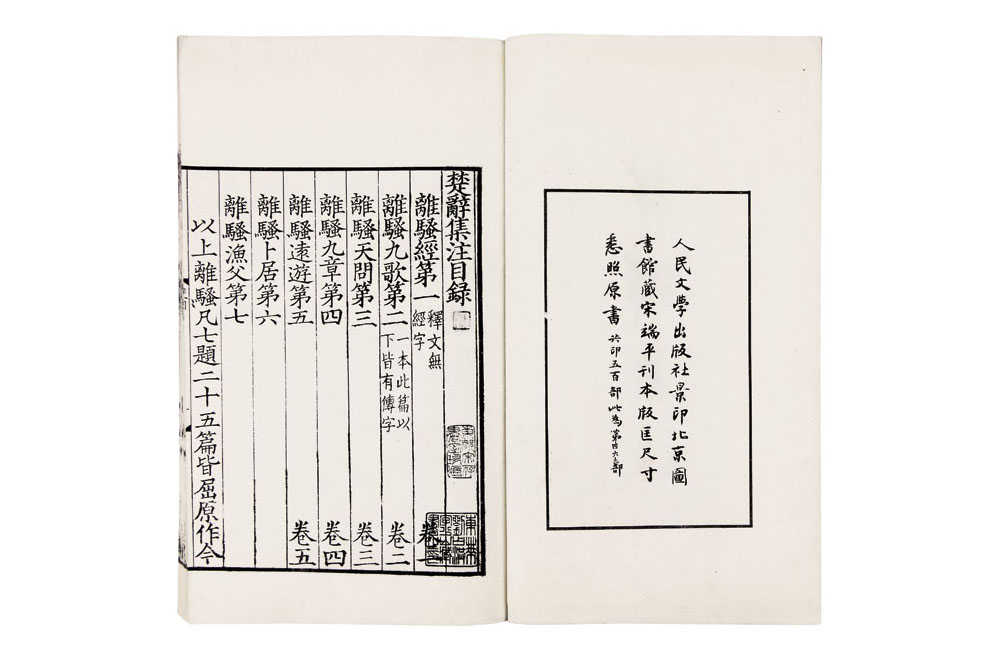 人民文學出版社景印北京圖
書館藏宋端平刊本版匡尺寸
悉照原書共印五百部此為第部
楚辭集注目録
離騷經第一釋文無經字卷一
離騷九歌第二一本此篇以下皆有傳字卷二
離騷天問第三卷三
離騷九章第四卷四
離騷遠遊第五卷五
離騷卜居第六
離騷漁父第七
以上離騷凡七題二十五篇皆屈原作今